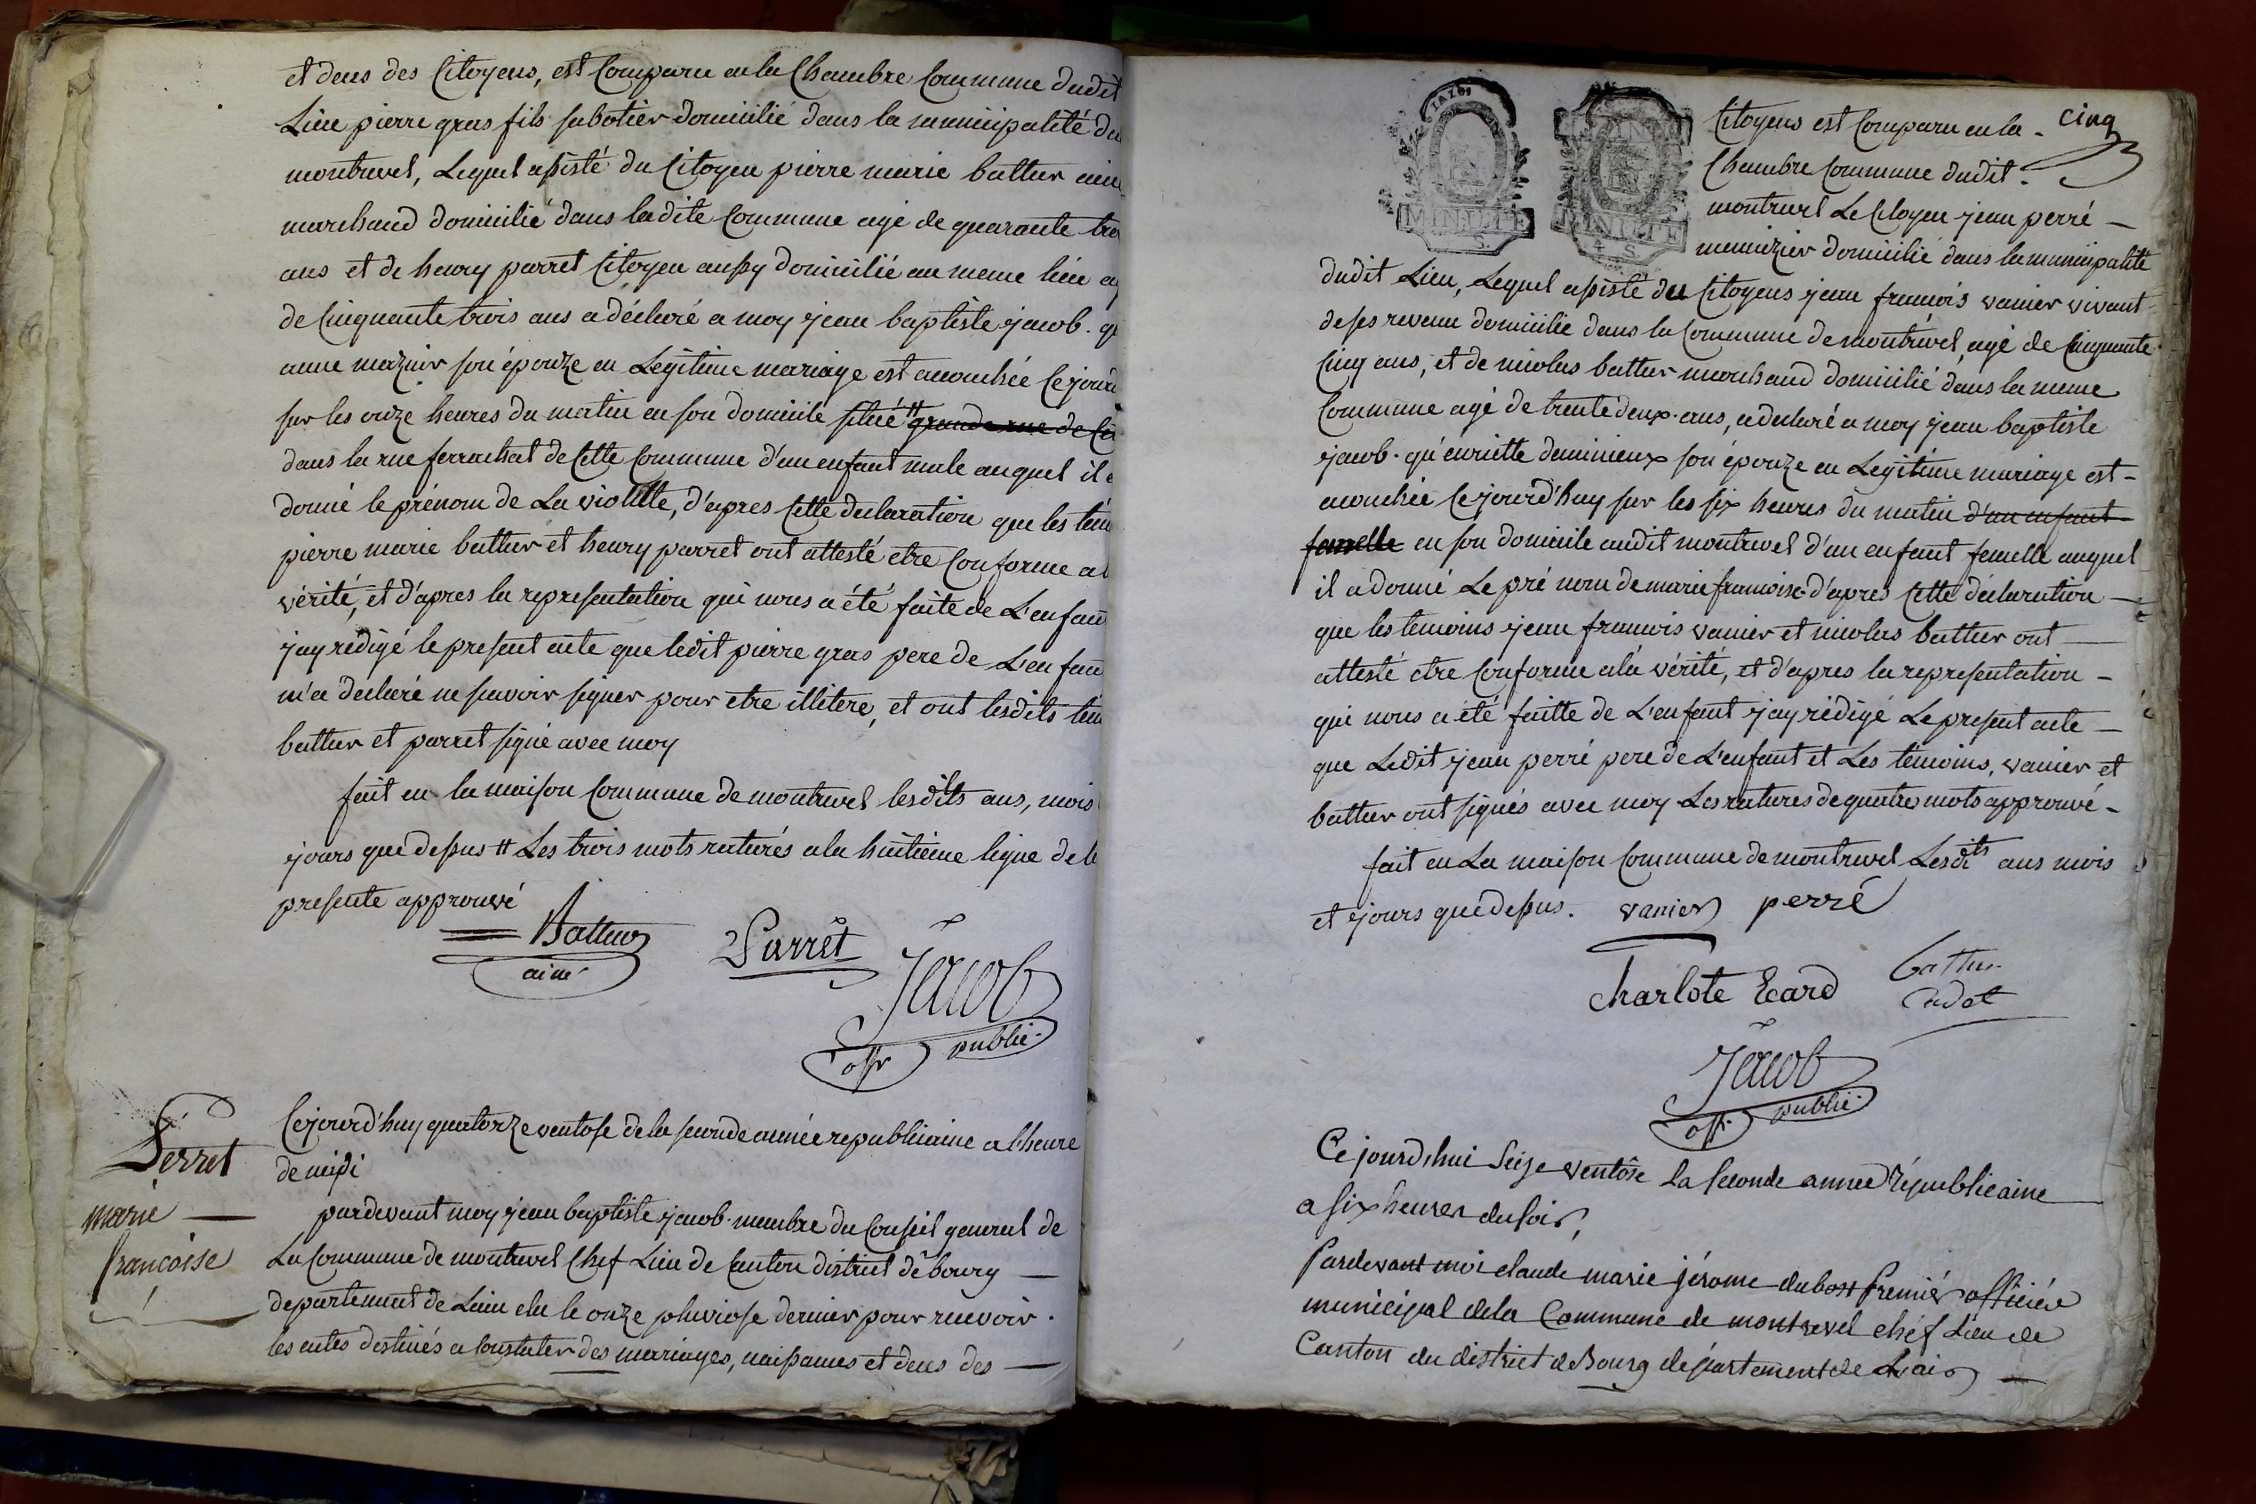 et deces des Citoyens, est Comparu en la Chambre Commune dudit
Lieu pierre gras fils sabotier domicilié dans la municipalité de
montrevel, Lequel assisté du Citoyen pierre marie battur ainé
marchand domicilié dans ladite Commune agé de quarante trois
ans et de henry parret Citoyen aussy domicilié au meme lieu
de Cinquante trois ans a déclaré a moy jean baptiste jacob. q
anne mazuir son épouze en Legitime mariage est acouchée Cejourd
sur les onze heures du matin en son domicile situé # grande rue de
dans la rue ferrachat de Cette Commune d'un enfant male auquel il
donné le prénom de La violette, d'apres Cette declaration que les tém
pierre marie battur et henry parret ont attesté etre Conforme a l
vérité, et d'apres la representation qui nous a été faite de L'enfan
jay rédigé le present acte que ledit pierre gras pere de L'enfan
m'a declaré ne savoir signer pour etre illitere, et ont lesdits tém
battur et parret signé avec moy
fait en la maison Commune de montrevel lesdits ans, mois
jours que dessus # Les trois mots raturés a la huitieme ligne de l
presente approuvé
Battur
ainé
Parret
Jacob
offr public
Perret
marie
francoise
Cejourd'huy quatorze ventose de la seconde année republicaine a l'heure
de midi
pardevant moy jean baptiste jacob. membre du Conseil general de
La Commune de montrevel Chef Lieu de Canton district de bourg
departement de Lain elu le onze pluviose dernier pour recevoir.
les actes destinés a Constater des mariages, naissances et deces des
cinq
MINUTE
4 S.
MINUTE
4 S.
Citoyens est Comparu en la
Chambre Commune dudit
montrevel Le Citoyen jean perré
menuizier domicilié dans la municipalité
dudit Lieu, Lequel assisté des Citoyens jean francois vanier vivant
de ses revenu domicilié dans la Commune de montrevel, agé de Cinquante
Cinq ans, et de nicolas battur marchand domicilié dans la meme
Commune agé de trente deux. ans, a declaré a moy jean baptiste
jacob. qu'enriette deminieux son épouze en Legitime mariage est
acouchée Cejourd'huy sur les six heures du matin d'un enfant
femelle en son domicile audit montrevel d'un enfant femelle auquel
il a donné Le pré nom de marie francoise d'apres Cette déclaration
que les temoins jean francois vanier et nicolas battur ont
attesté etre Conforme a la vérité, et d'apres la representation
qui nous a été faitte de L'enfant jay rédigé Le present acte
que Ledit jean perré pere de L'enfant et Les temoins, vanier et
battur ont signés avec moy Les ratures de quatre mots approuvé
fait en La maison Commune de montrevel Lesdits ans mois
et jours que dessus. vanier perré
Charlote Ecard battur
Cadet
Jacob
off. public.
Cejourd'hui Seize ventôse la seconde année République aine
a six heures du soir,
Pardevant moi claude marie jérome dubost Premiér officiér
municipal de la Commune de montrevel chéf Lieu de
Canton du district de Bourg département de L'ain